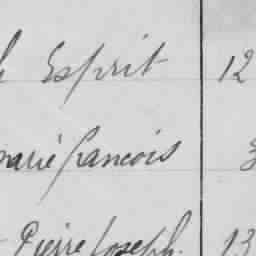 Esprit 12
marie francois
Pierre Joseph 13